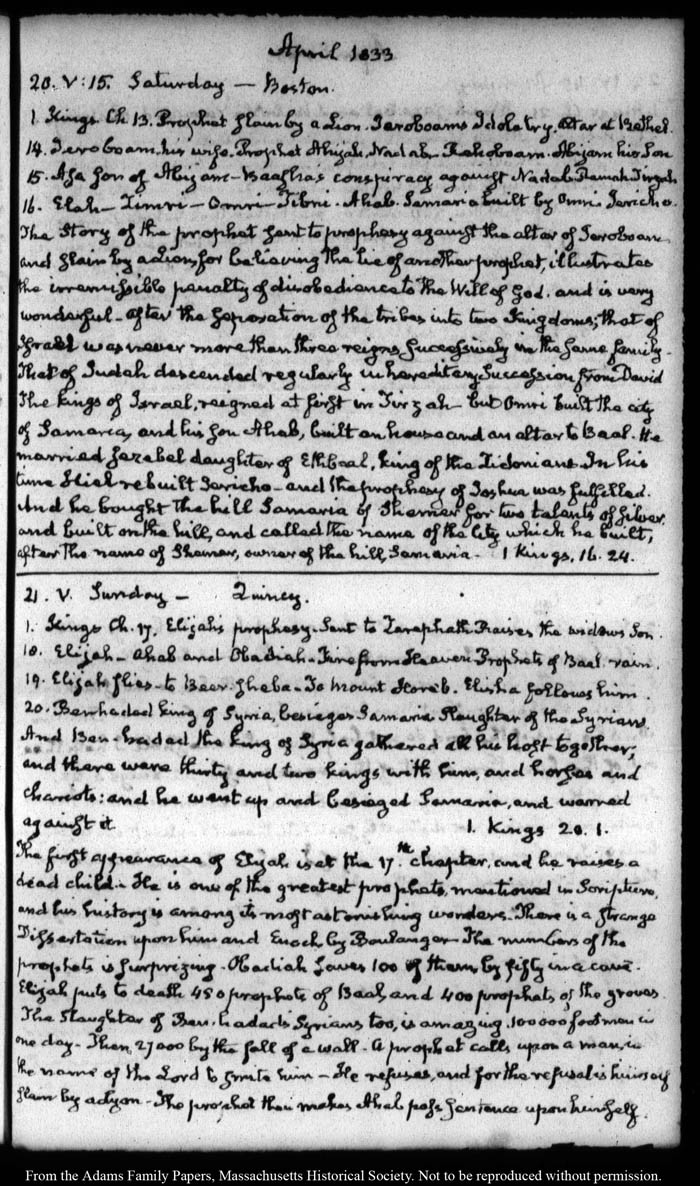 April 1833
20. V:15. Saturday — Boston.
1. Kings Ch 13. Prophet slain by a Lion. Jeroboams Idolatry. Altar at Bethel.
14. Jeroboam, his wife. Prophet Ahijah, Nadab. Rehoboam. Abijam his Son
15. Asa son of Abijam — Baasha's conspiracy against Nadab. Ramah Tirzah
16. Elah — Zimri — Omri — Tibni. Ahab. Samaria built by Omri. Jericho.
The Story of the prophet sent to prophesy against the altar of Jeroboam
and slain by a Lion, for believing the lie of another prophet, illustrates
the irremissible penalty of disobedience to the Will of God. and is very
wonderful — after the separation of the tribes into two Kingdoms; that of
Israel was never more than three reigns successively in the same family —
That of Judah descended regularly in hereditary Succession from David
The kings of Israel, reigned at first in Tirzah — but Omri built the city
of Samaria, and his son Ahab, built an house and an altar to Baal. He
married Jezebel daughter of Ethbaal, king of the Zidonians. In his
time Hiel rebuilt Jericho — and the prophesy of Joshua was fulfilled.
And he bought the hill Samaria of Shemer for two talents of silver
and built on the hill, and called the name of the City which he built,
after the name of Shemer, owner of the hill, Samaria — 1 Kings, 16. 24.
21. V. Sunday — Quincy.
1. Kings Ch. 17. Elijah's prophesy. Sent to Zarephath. Raises the widows Son.
18. Elijah — Ahab and Obadiah — Fire from Heaven. Prophets of Baal. rain.
19. Elijah flies — to Beer-sheba — To Mount Horeb. Elisha follows him.
20. Benhadad king of Syria, besieges Samaria. Slaughter of the Syrians
And Ben-hadad the king of Syria gathered all his host together;
and there were thirty and two kings with him, and horses and
chariots: and he went up and besieged Samaria, and warred
against it 1. Kings 20. 1.
The first appearance of Elijah is at the 17.th chapter, and he raises a
dead child — He is one of the greatest prophets, mentioned in Scripture,
and his history is among its most astonishing wonders — There is a strange
Dissertation upon him and Enoch by Boulanger — The numbers of the
prophets is surprizing. Obadiah saves 100 of them by fifty in a cave.
Elijah puts to death 450 prophets of Baal, and 400 prophets of the groves.
The Slaughter of Ben-hadad's Syrians too, is amazing. 100000 footmen in
one day — Then, 27000 by the fall of a wall — A prophet calls upon a man, in
the name of the Lord to smite him — He refuses, and for the refusal is himself
slain by a lyon — The prophet then makes Ahab pass sentence upon himself.
From the Adams Family Papers, Massachusetts Historical Society. Not to be reproduced without permission.